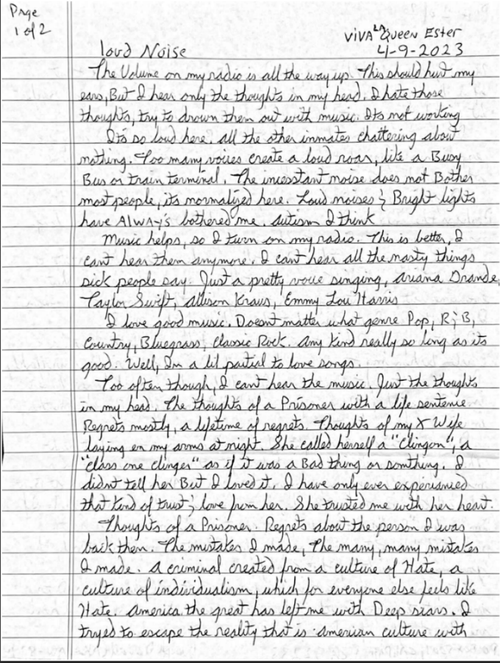 Page
1 of 2
ViVA LA Queen Ester
loud Noise
4-9-2023
The Volume on my radio is all the way up. This should hurt my
ears, But I hear only the thoughts in my head. I hate those
thoughts, try to drown them out with music. Its not working
Its so loud here, all the other inmates chattering about
nothing. Too many voices create a loud roar, like a Busy
Bus or train terminal. The incesstant noise does not Bother
most people, its normalized here. Loud noises & Bright lights
have AlWAYs bothered me. Autism I think
Music helps, so I turn on my radio. This is better, I
cant hear them anymore. I cant hear all the nasty things
sick people say. Just a pretty voice singing, Ariana Grande,
Taylor Swift, Allison Kraus, Emmy Lou Harris
I love good music. Doesnt matter what genre Pop, R&B,
Country, Bluegrass, Classic Rock. Any kind really so long as its
good. Well, Im a lil partial to love songs.
Too often though, I cant hear the music. Just the thoughts
in my head. The thoughts of a Prisoner with a life sentence
Regrets mostly, a lifetime of regrets. Thoughts of my X Wife
laying en my arms at night. She called herself a "Clingon", a
"class one clinger" as if it was a Bad thing or somthing. I
didnt tell her But I loved it. I have only ever experianced
that kind of trust & love from her. She trusted me with her heart.
Thoughts of a Prisoner. Regrets about the person I was
back then. The mistakes I made, The many, many mistakes
I made. A criminal created from a culture of Hate, a
culture of individualism, which for everyone else feels like
Hate. America the great has left me with Deep scars. I
tryed to escape the reality that is American culture with